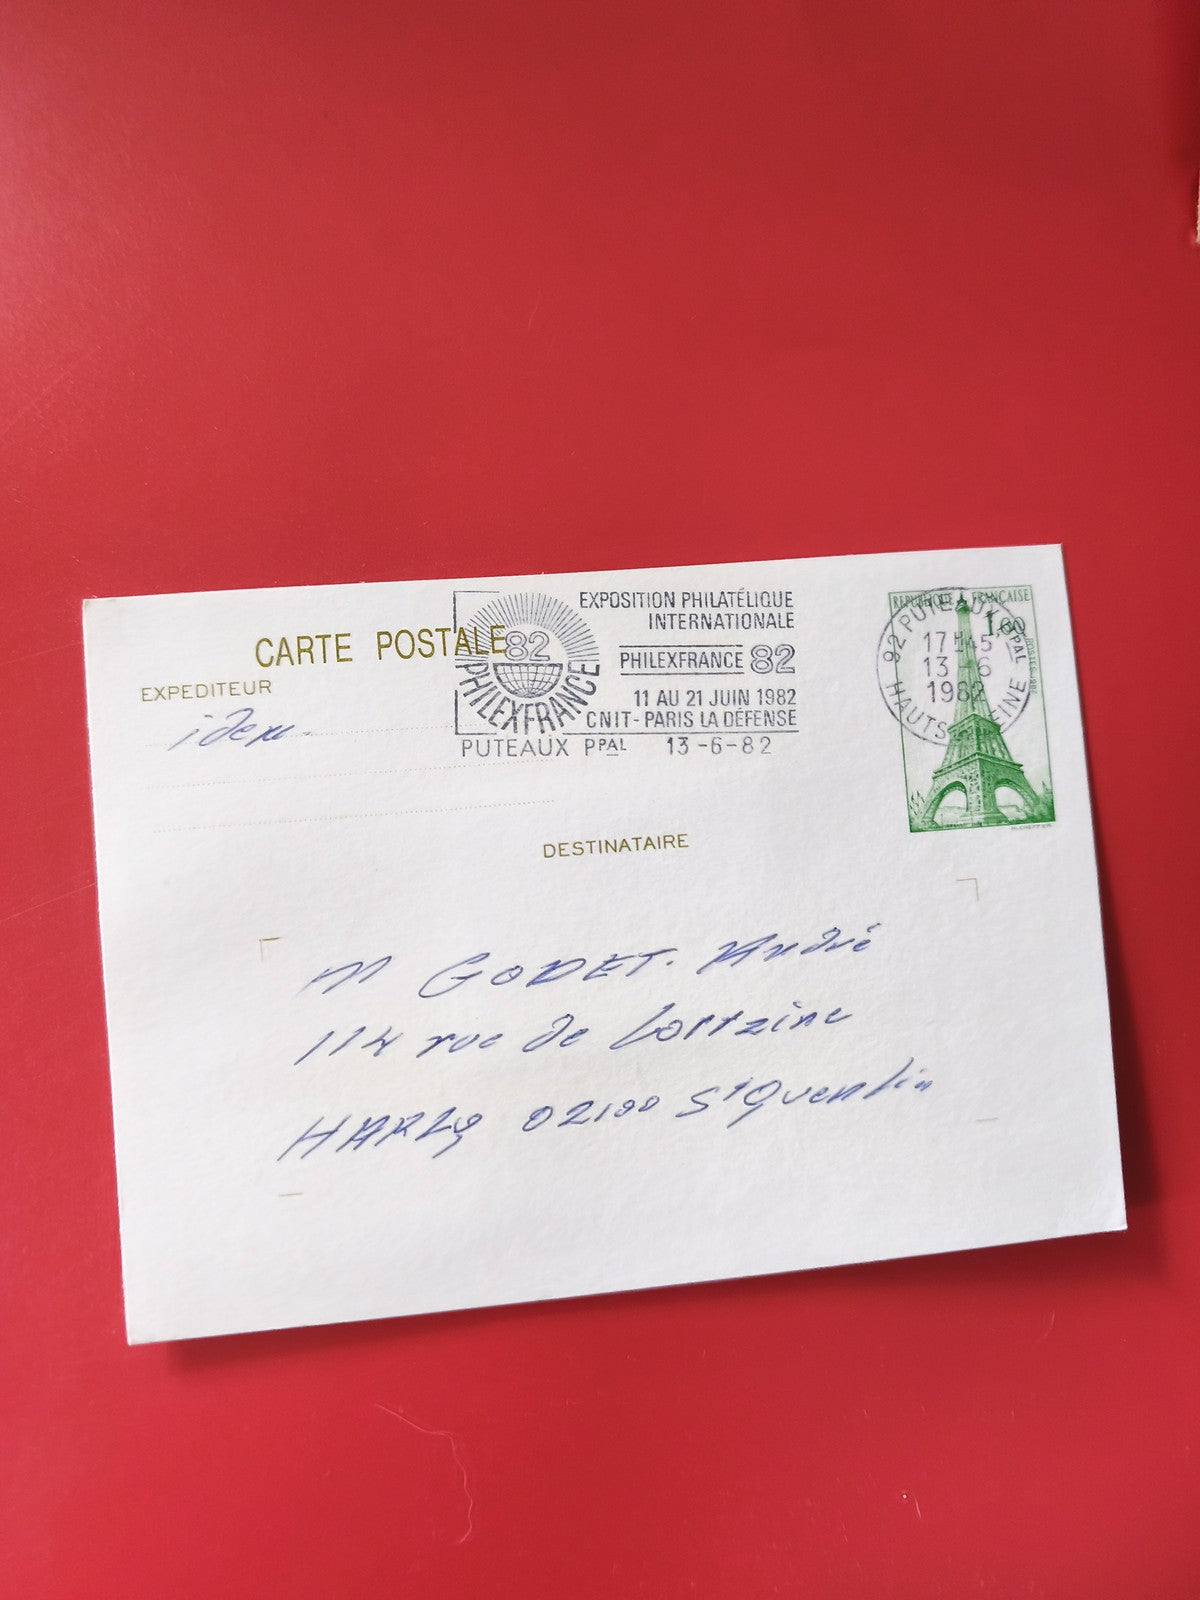 CARTE POSTALE
EXPEDITEUR
idem.
82
PHILEXFRANCE
EXPOSITION PHILATÉLIQUE
INTERNATIONALE
PHILEXFRANCE 82
11 AU 21 JUIN 1982
CNIT - PARIS LA DÉFENSE
PUTEAUX PPAL 13-6-82
REPUBLIQUE FRANÇAISE
1,60
POSTES 1982
92 PUTEAUX PPAL
17H45
13-6
1982
HAUTS DE SEINE
DESTINATAIRE
M GODET. André
114 rue de Lortzine
HARLY 02100 St Quentin